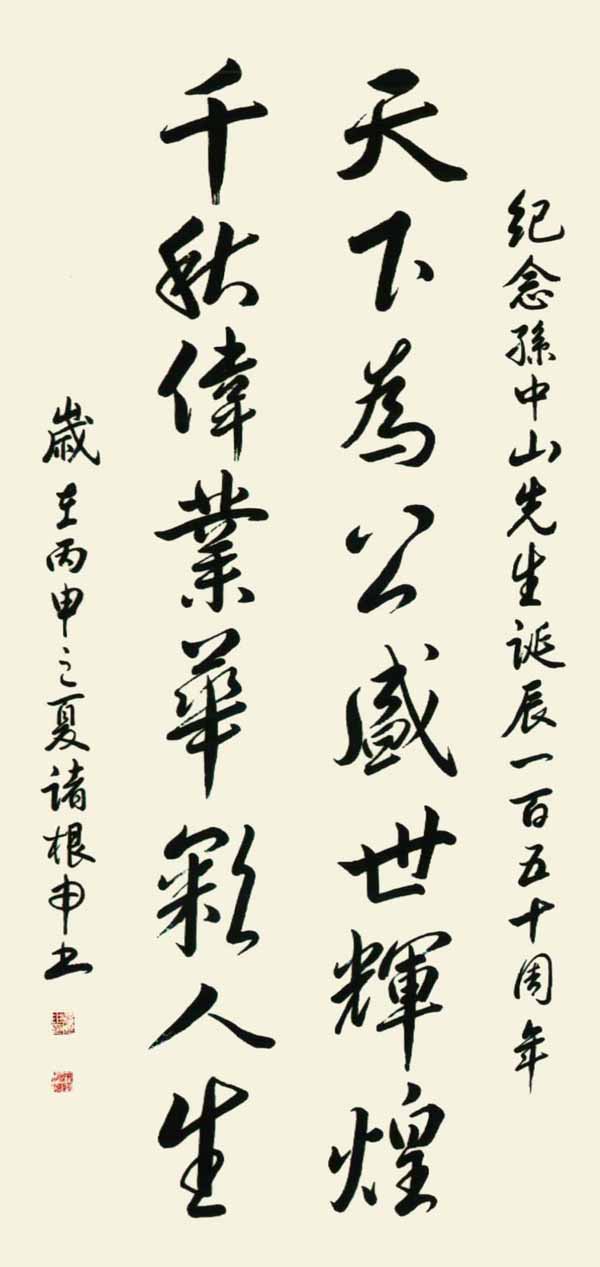 紀念孫中山先生诞辰一百五十周年
天下為公盛世輝煌
千秋偉業華彩人生
歲在丙申之夏诸根申书